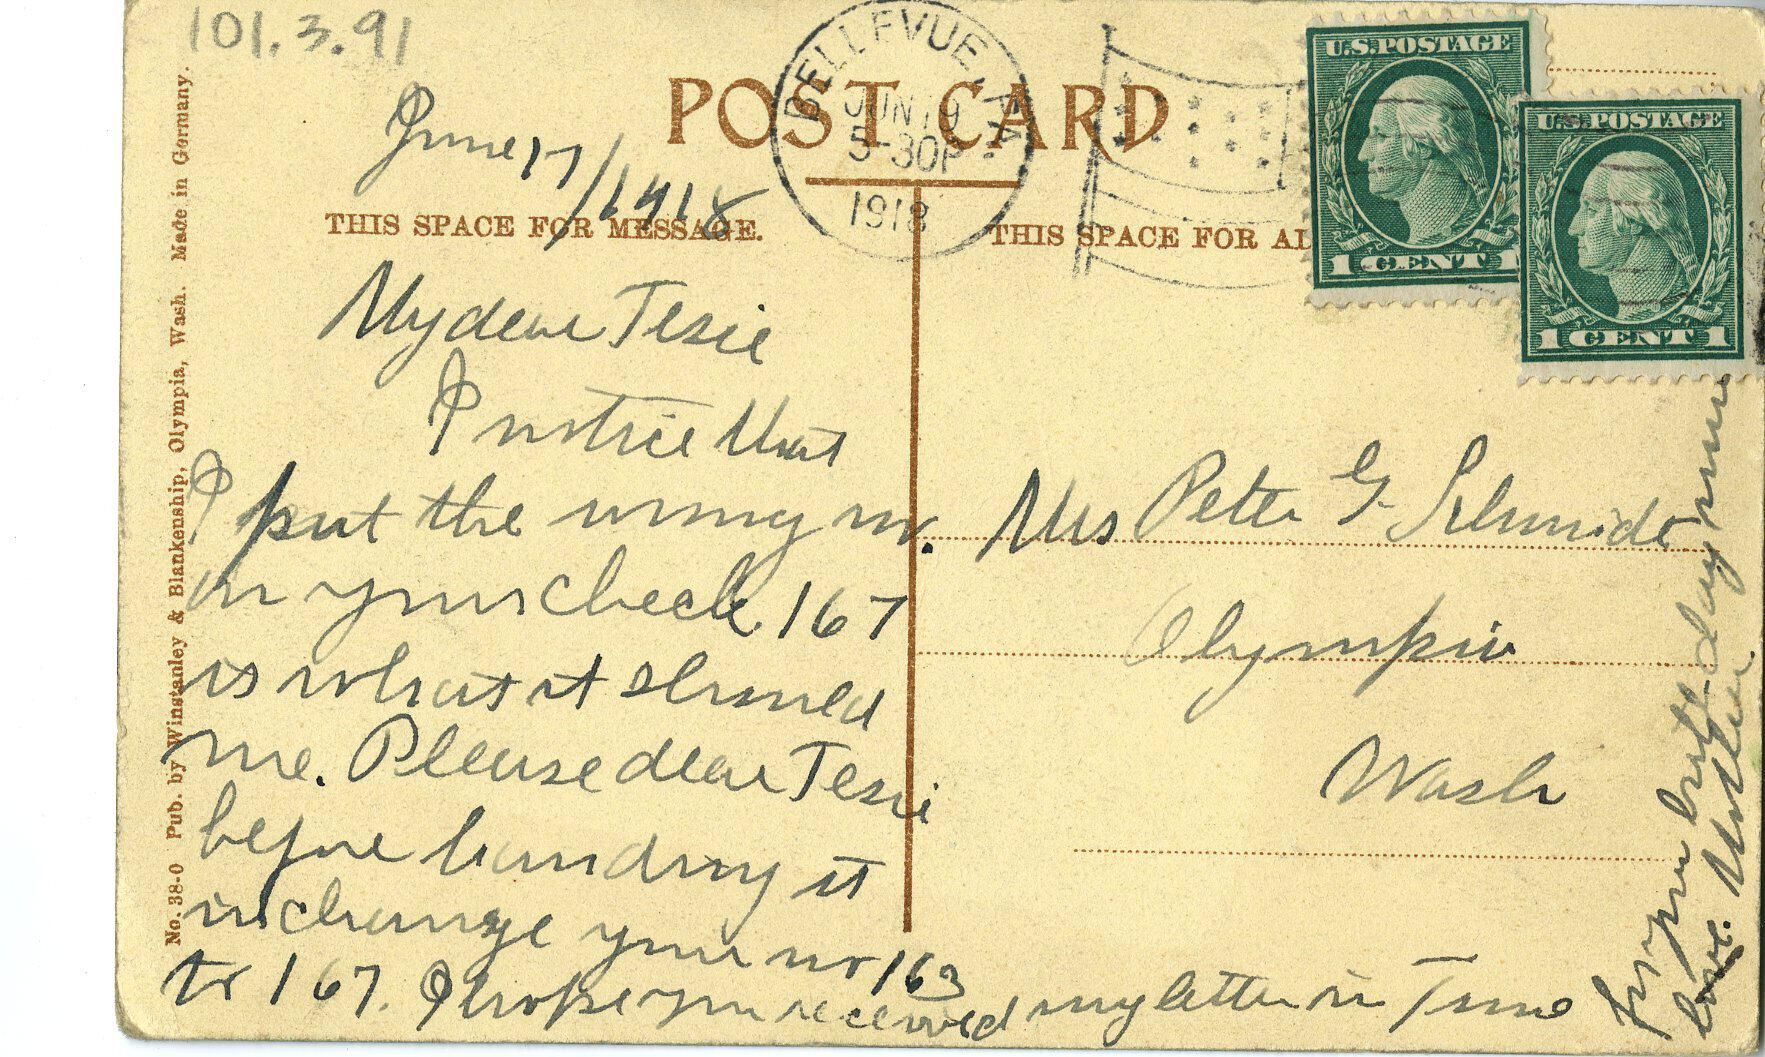 101.3.91
POST CARD
BELLEVUE, PA.
JUN 19
5-30P
1918
U.S. POSTAGE
1 CENT 1
U.S. POSTAGE
1 CENT 1
June 17/1918
THIS SPACE FOR MESSAGE.
My dear Tesie
I notice that
I put the wrong no.
on your check 167
is what it should
me. Please dear Tesie
before handing it
in change your no 163
to 167. I hope you received my letter in Time
for your birth-day
love. Mother.
THIS SPACE FOR AD
Mrs Peter G. Schmidt
Olympia
Wash
No. 38-0 Pub. by Winstanley & Blankenship, Olympia, Wash. Made in Germany.